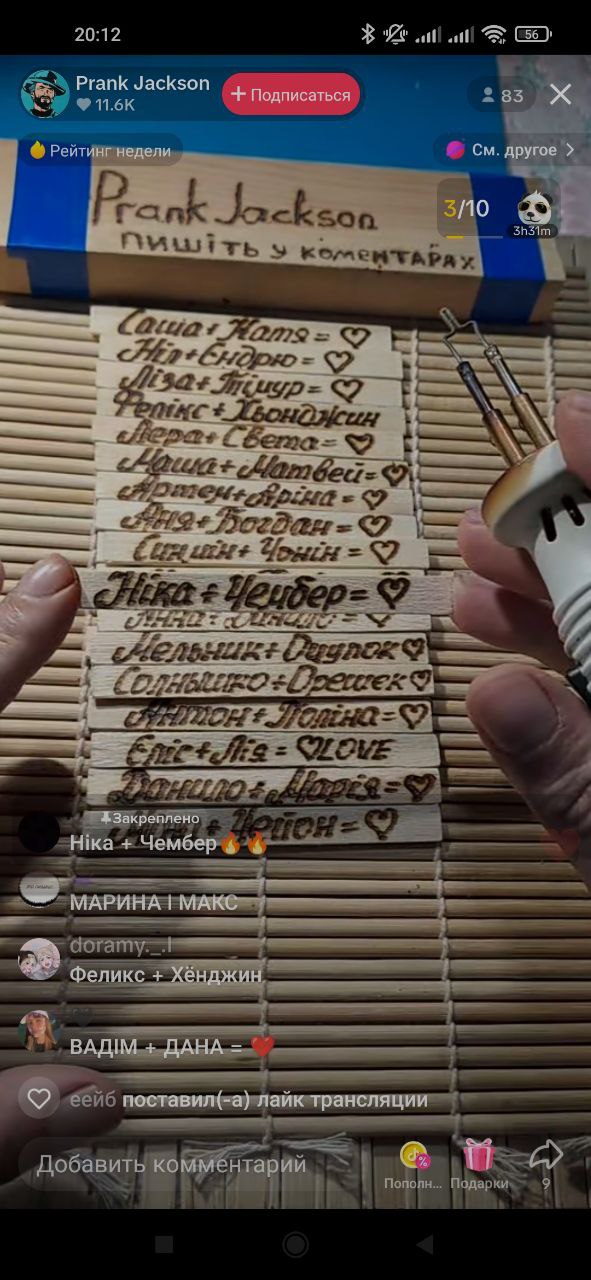 20:12
56
Prank Jackson
11.6K
+ Подписаться
83
Рейтинг недели
См. другое
Prank Jackson
пишіть у коментарях
3/10
3h31m
Саша + Катя =
Ніл + Ендрю =
Ліза + Тімур =
Фелікс + Хьонджин
Лера + Света =
Маша + Матвей =
Артем + Аріна =
Аня + Богдан =
+ Чонін =
Ніка + Чембер =
Анна + Данило =
Мельник +
Солнышко + Орешек
Антон + Поліна =
Еліс + Лія = LOVE
Данило + Марія =
+ Чейон =
Закреплено
Ніка + Чембер🔥🔥
МАРИНА | МАКС
doramy._.l
Феликс + Хёнджин
ВАДІМ + ДАНА = ❤️
еейб поставил(-а) лайк трансляции
Добавить комментарий
Пополн...
Подарки
9